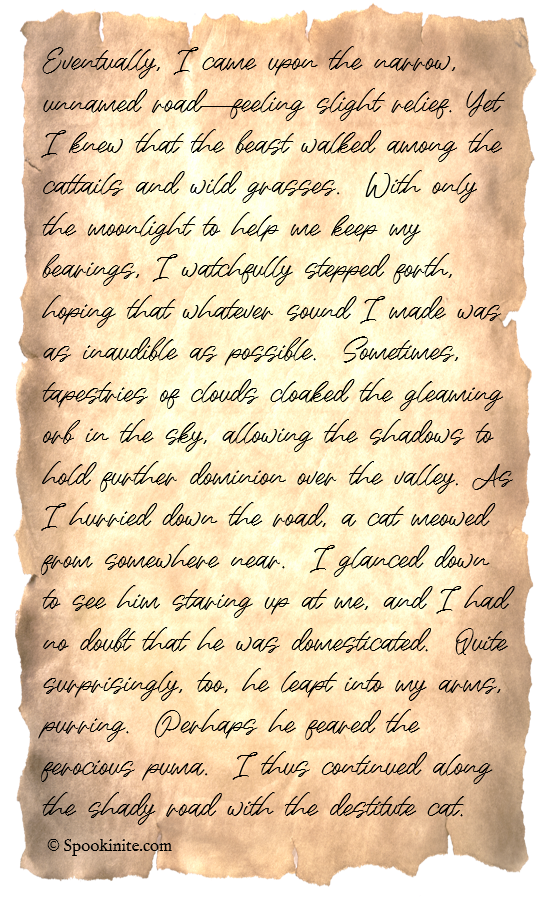 Eventually, I came upon the narrow,
unnamed road—feeling slight relief. Yet
I knew that the beast walked among the
cattails and wild grasses. With only
the moonlight to help me keep my
bearings, I watchfully stepped forth,
hoping that whatever sound I made was
as inaudible as possible. Sometimes,
tapestries of clouds cloaked the gleaming
orb in the sky, allowing the shadows to
hold further dominion over the valley. As
I hurried down the road, a cat meowed
from somewhere near. I glanced down
to see him staring up at me, and I had
no doubt that he was domesticated. Quite
surprisingly, too, he leapt into my arms,
purring. Perhaps he feared the
ferocious puma. I thus continued along
the shady road with the destitute cat.
© Spookinite.com